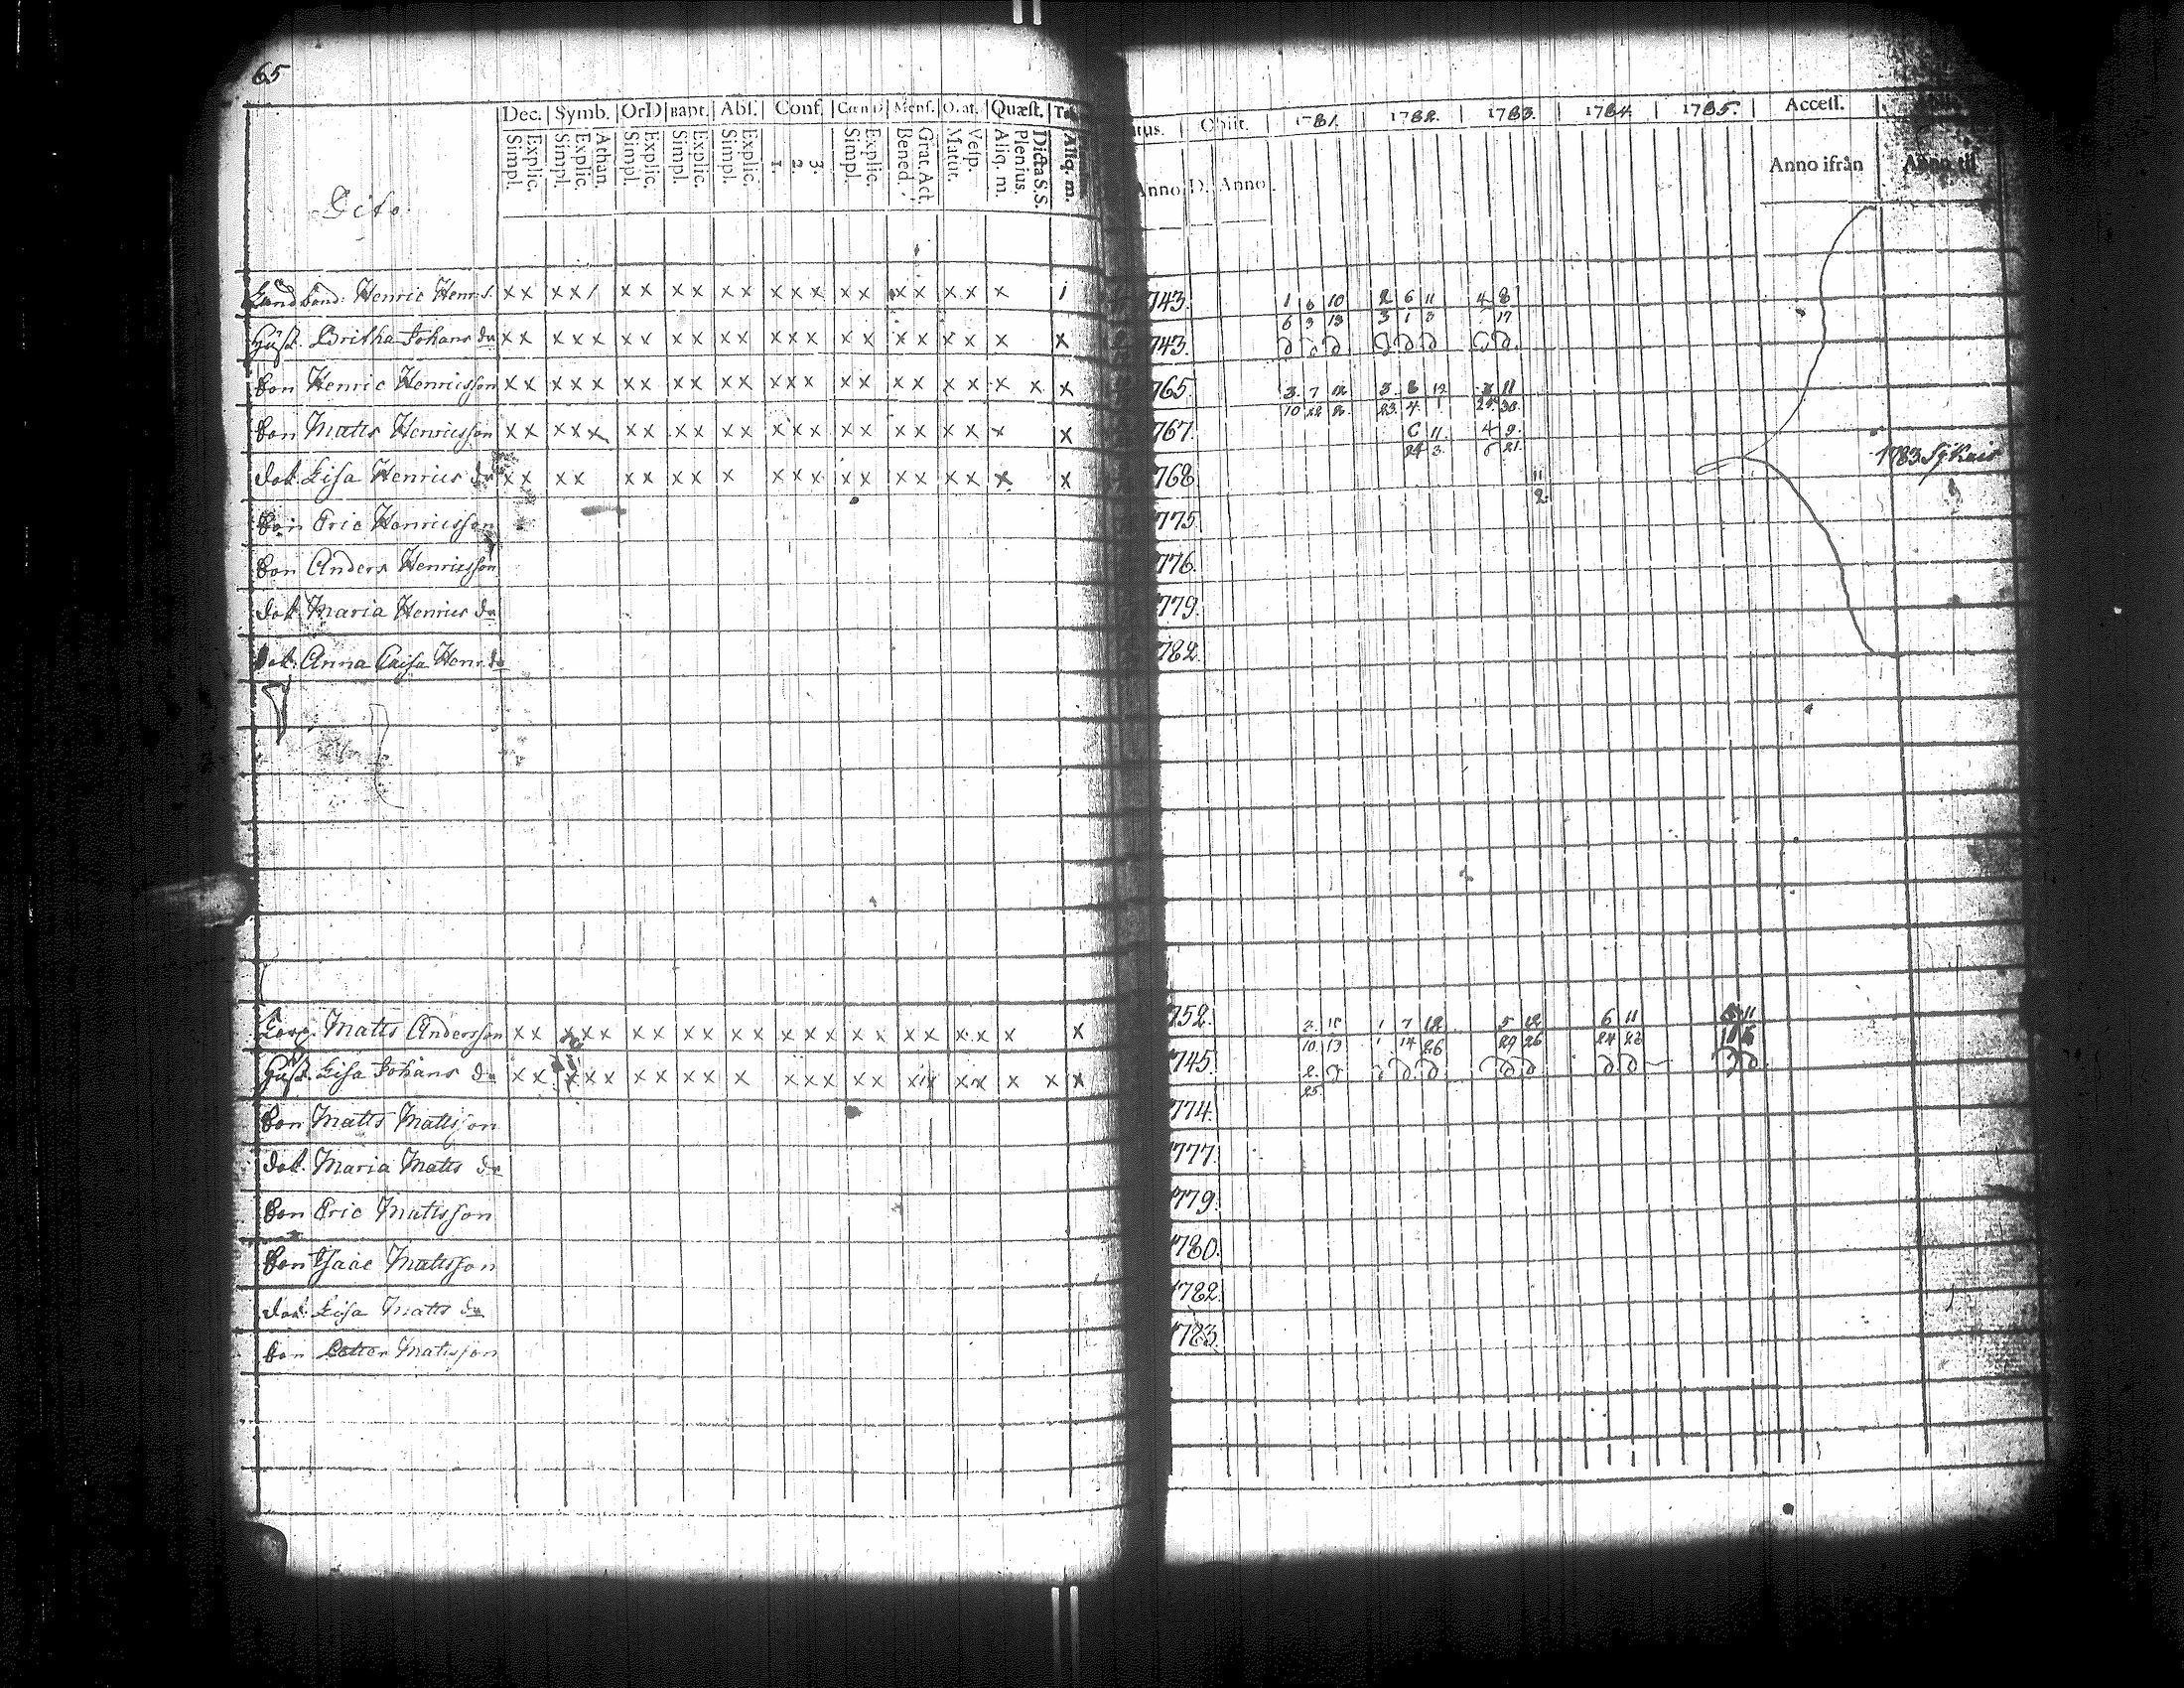 65
Dec. Symb. OrD Bapt. Abſ. Conf. Cœn D Menſ. Orat. Quæſt. natus. Obiit. 1781. 1782. 1783. 1784. 1785. Acceſſ.
Simpl. Explic. Simpl. Explic. Athan. Simpl. Explic. Simpl. Explic. Simpl. Explic. 1. 2. 3. Simpl. Explic. Bened. Grat. Act. Matut. Veſp. Aliq. m. Plenius. Dicta S.S. Aliq. m. Anno D. Anno Anno ifrån Anno til
Dito.
Landbond. Henric Henrs. x x x x / x x x x x x x x x x x x x x x x 1 743. 1 6 10 2 6 11 4 8
6 3 13 3 1 3 17
Hust. Britha Johans dr x x x x x x x x x x x x x x x x x x x x x x 743.
Son Henric Henricsson x x x x x x x x x x x x x x x x x x x x x x x 765. 3. 7 12 3. 8 12 3 11
10 22 2. 23. 4. 1 25. 30.
Son Matts Henricsson x x x x x x x x x x x x x x x x x x x x x x 767. 6 11. 4 9.
24 3. 6 21.
dot. Lisa Henrics dr x x x x x x x x x x x x x x x x x x x x 768 11 1783
2.
Son Eric Henricsson 775.
Son Anders Henricsson 776.
dot. Maria Henrics dr 779.
dot. Anna Caisa Henr. dr 782.
Matts Andersson x x x x x x x x x x x x x x x x x x x x x x 752. 1 7 12 5 12 6 11 11
10 13 1 14 26 29 26 24 26
Hust. Lisa Johans dr x x x x x x x x x x x x x x x x x x x x x x 745. 2.
25.
Son Matts Mattsson 774.
dot. Maria Matts dr 777.
Son Eric Mattsson 779.
Son Isaac Mattsson 1780.
dot. Lisa Matts dr 1782.
Son Petter Mattsson 1783.